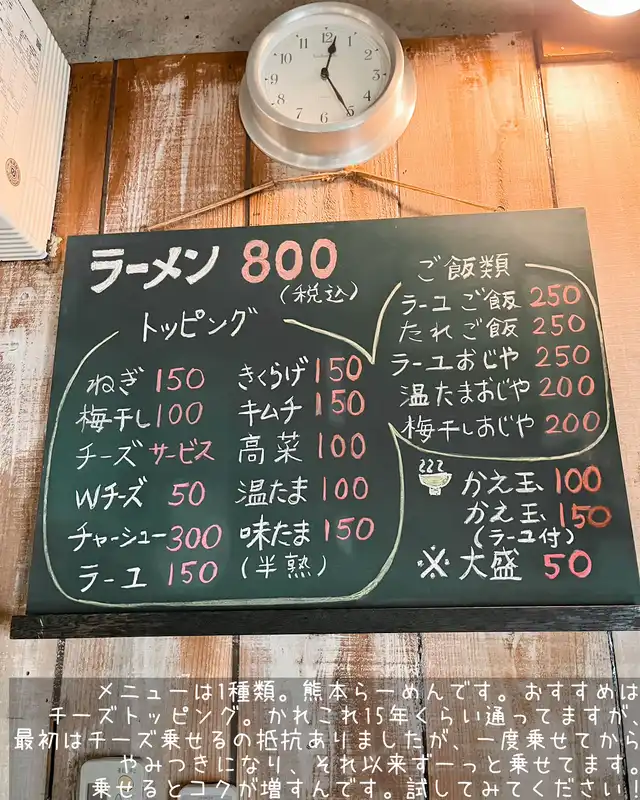 12
1
2
3
4
5
6
7
8
9
10
11
ラーメン 800
(税込)
トッピング
ねぎ 150
梅干し 100
チーズ サービス
Wチーズ 50
チャーシュー 300
ラーユ 150
きくらげ 150
キムチ 150
高菜 100
温たま 100
味たま 150
(半熟)
ご飯類
ラーユご飯 250
たれご飯 250
ラーユおじや 250
温たまおじや 200
梅干しおじや 200
かえ玉 100
かえ玉 150
(ラーユ付)
※大盛 50
メニューは1種類。熊本らーめんです。おすすめは
チーズトッピング。かれこれ15年くらい通ってますが、
最初はチーズ乗せるの抵抗ありましたが、一度乗せてから
やみつきになり、それ以来ずーっと乗せてます。
乗せるとコクが増すんです。試してみてください！